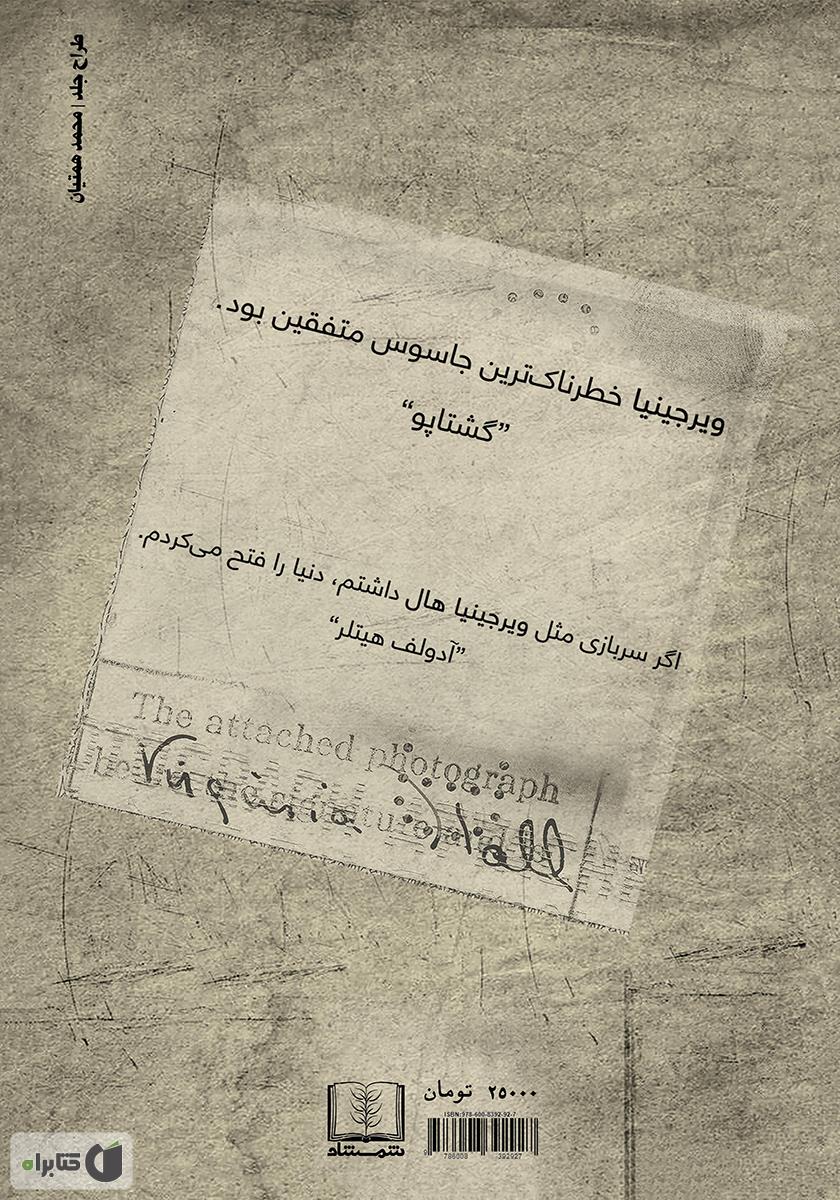 طراح جلد | محمد همتیان
ویرجینیا خطرناک‌ترین جاسوس متفقین بود.
”گشتاپو“
اگر سربازی مثل ویرجینیا هال داشتم، دنیا را فتح می‌کردم.
”آدولف هیتلر“
The attached photograph
be
signature
Virginia Hall
۲۵۰۰۰ تومان
ISBN: 978-600-8392-92-7
9 786008 392927
شمشاد
کتابراه